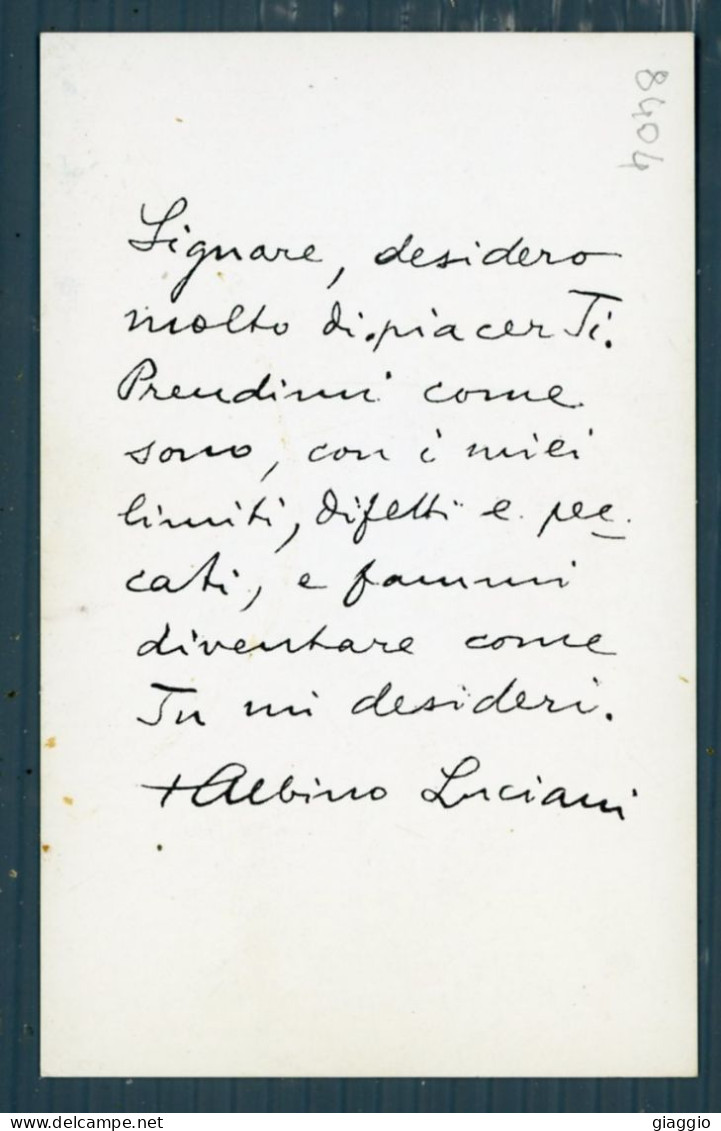 8404
Signore, desidero
molto di piacerTi.
Prendimi come
sono, con i miei
limiti, difetti e pec
cati, e fammi
diventare come
Tu mi desideri.
+Albino Luciani
delcampe.net
giaggio